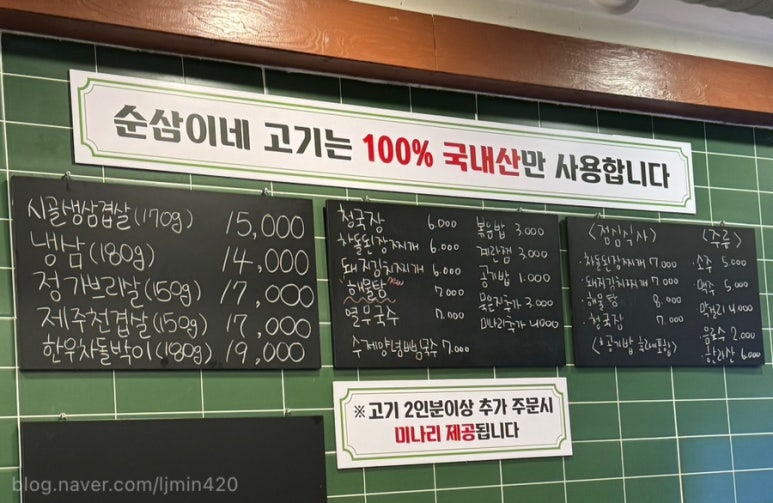 순삼이네 고기는 100% 국내산만 사용합니다
시골생삼겹살(170g) 15,000
냉삼(180g) 14,000
정가브리살(150g) 17,000
제주천겹살(150g) 17,000
한우차돌박이(180g) 19,000
청국장 6.000
차돌된장찌개 6.000
돼지김치찌개 6.000
해물탕 new 7.000
열무국수 7.000
수제양념비빔국수 7.000
볶음밥 3.000
계란찜 3.000
공기밥 1.000
묵은지추가 3.000
미나리추가 4.000
<점심식사>
·차돌된장찌개 7.000
·돼지김치찌개 7.000
·해물탕 8.000
·청국장 7.000
<주류>
·소주 5.000
·맥주 5.000
·막걸리 4.000
·음료수 2.000
·한라산 6.000
※고기 2인분이상 추가 주문시
미나리 제공됩니다
blog.naver.com/ljmin420